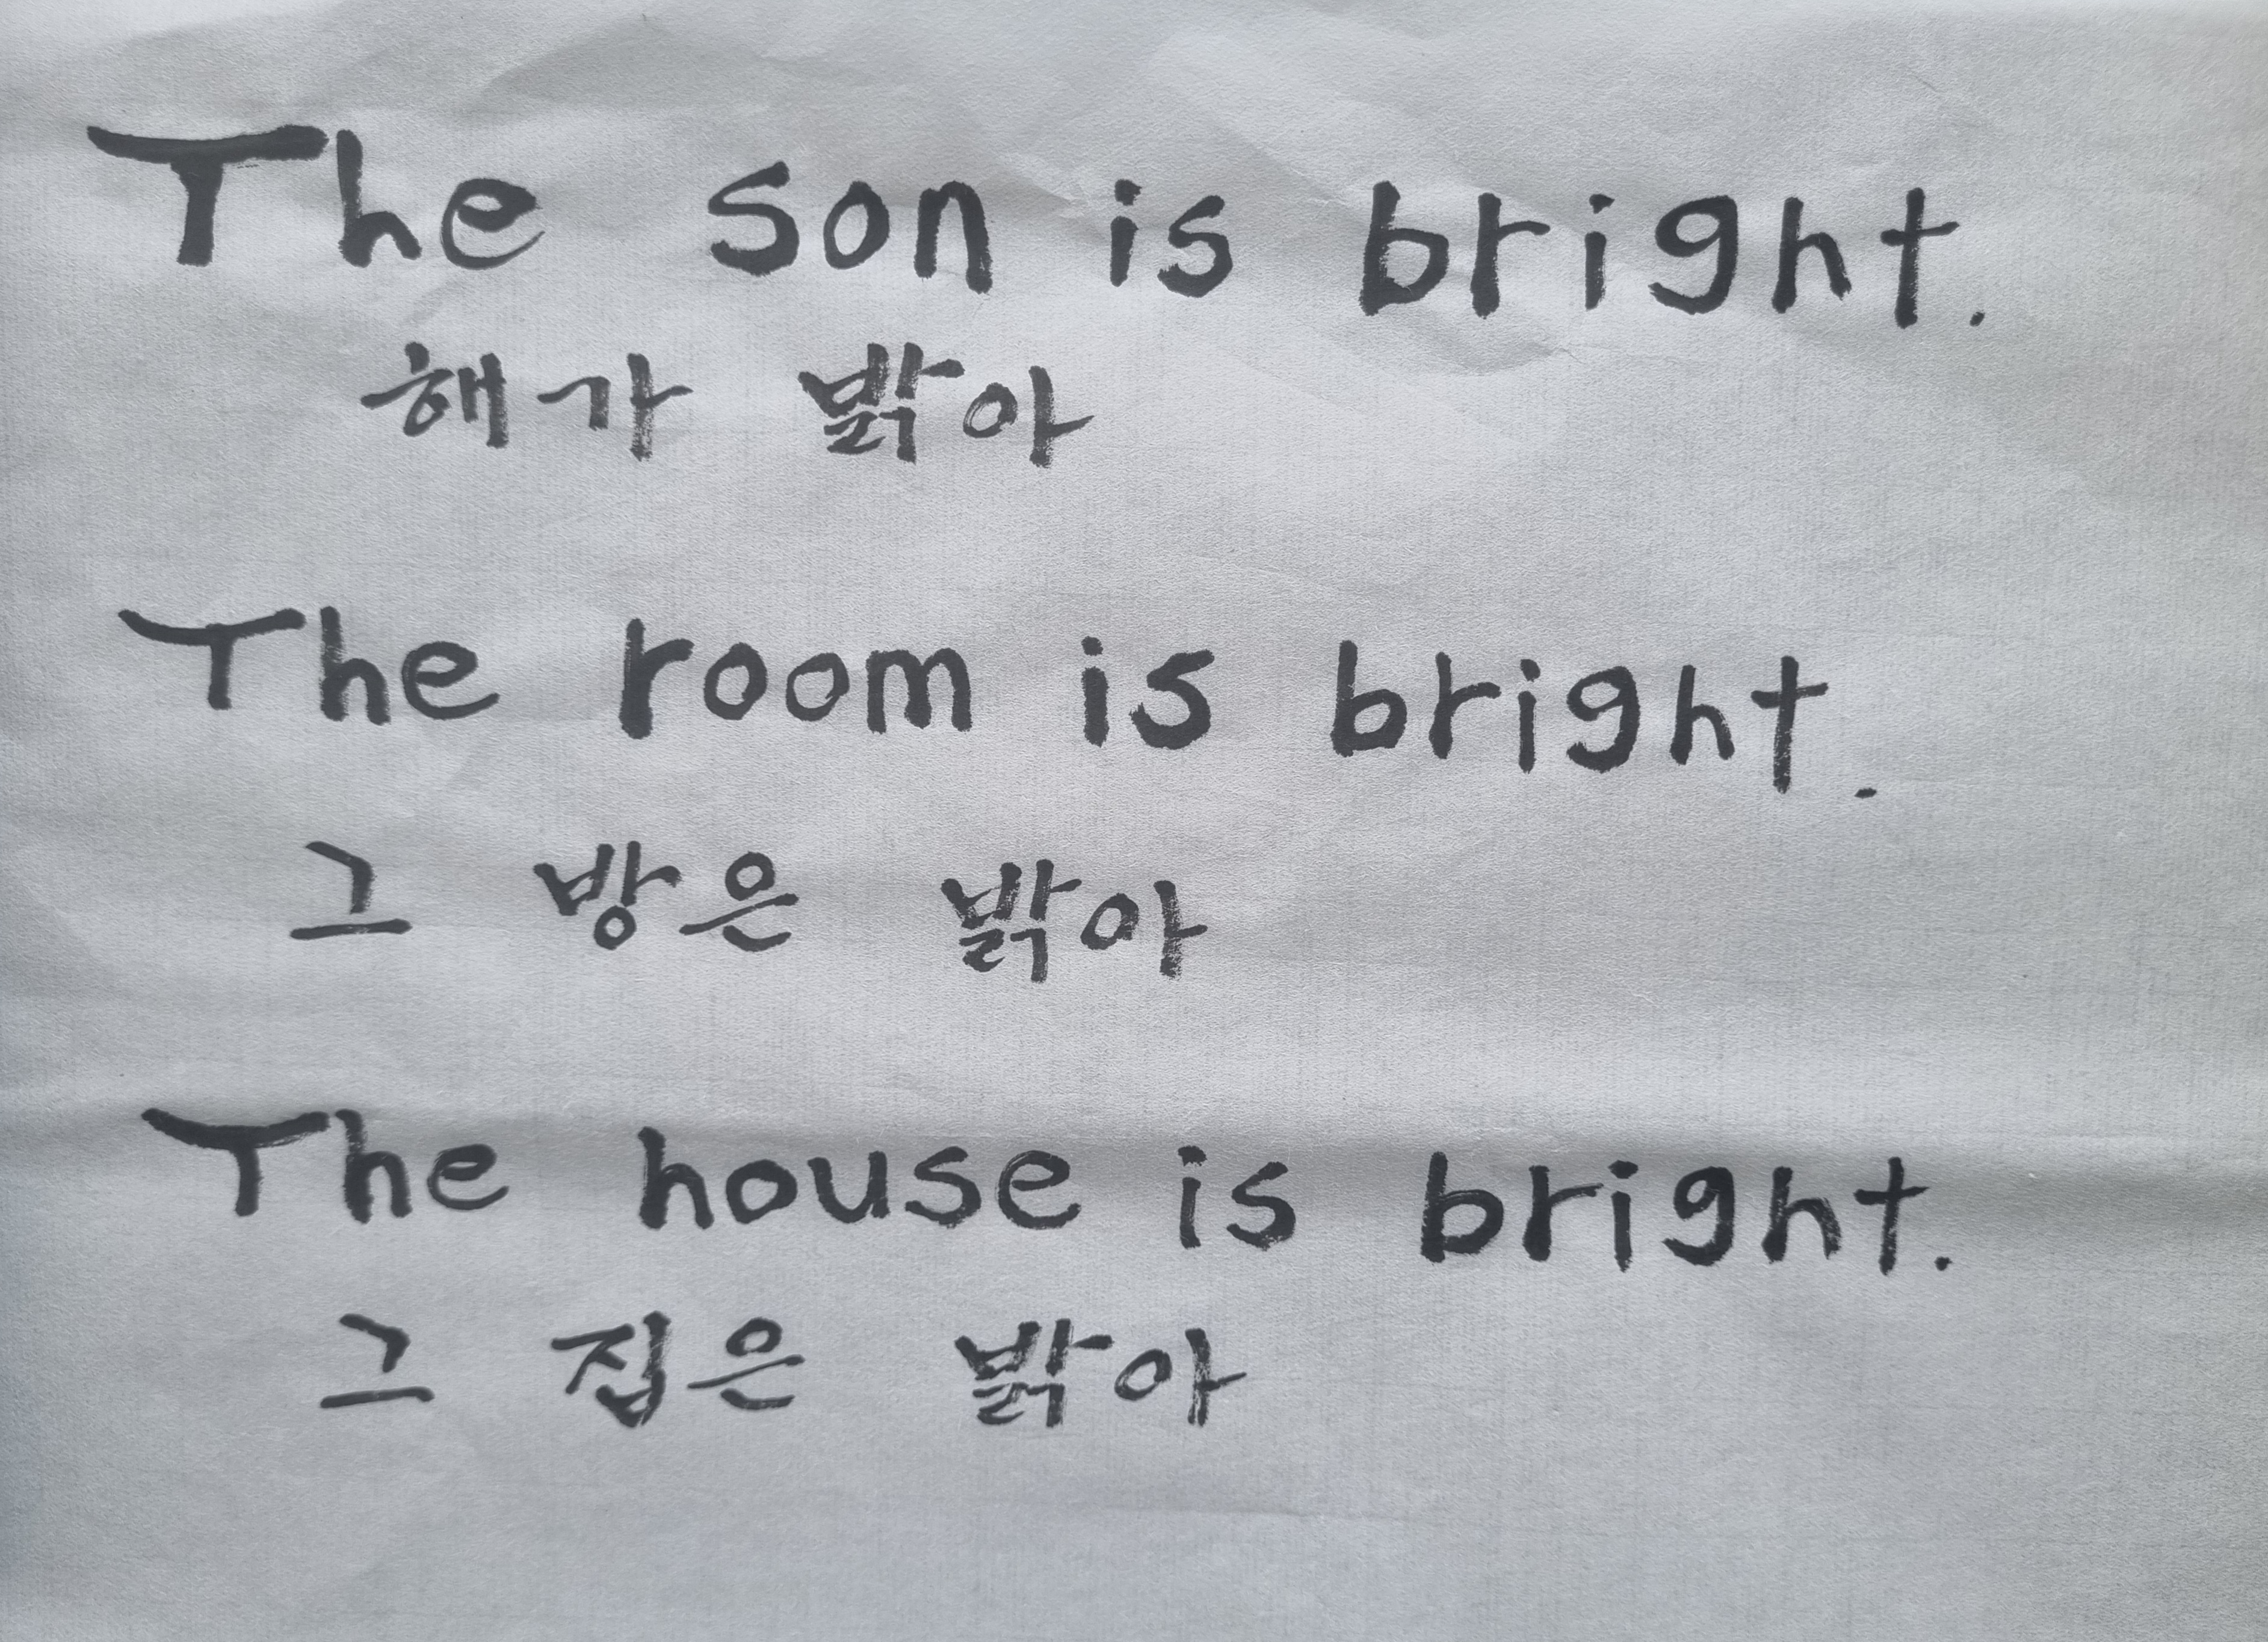 The son is bright.
해가 밝아
The room is bright.
그 방은 밝아
The house is bright.
그 집은 밝아